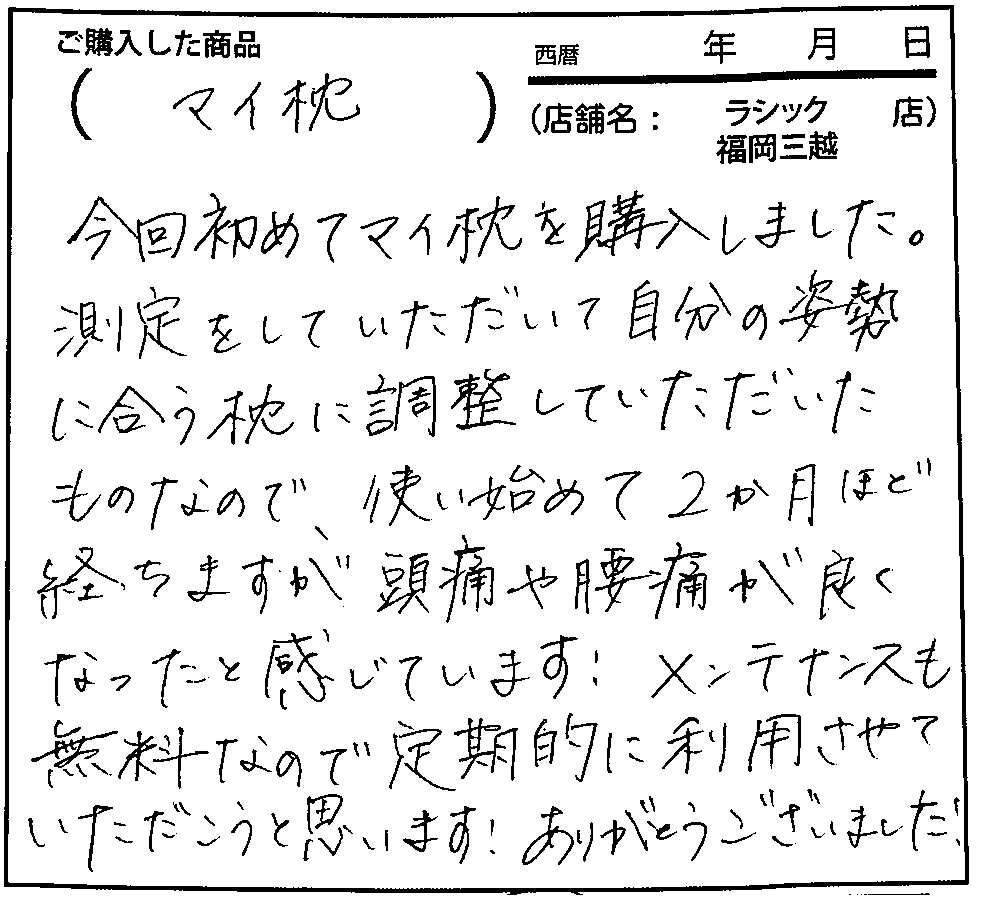 ご購入した商品
( マイ枕 )
西暦 年 月 日
(店舗名: ラシック福岡三越 店)
今回初めてマイ枕を購入しました。
測定をしていただいて自分の姿勢
に合う枕に調整していただいた
ものなので、使い始めて2か月ほど
経ちますが頭痛や腰痛が良く
なったと感じています! メンテナンスも
無料なので定期的に利用させて
いただこうと思います! ありがとうございました!